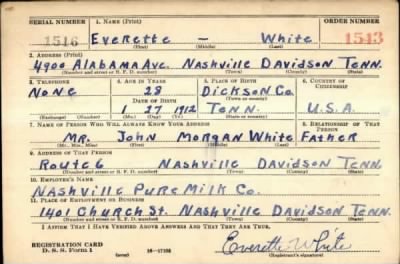 SERIAL NUMBER 1. NAME (Print) ORDER NUMBER
1516 Everette — White 1543
(First) (Middle) (Last)
2. ADDRESS (Print)
4900 Alabama Ave. Nashville Davidson Tenn.
(Number and street or R. F. D. number) (Town) (County) (State)
3. TELEPHONE 4. AGE IN YEARS 5. PLACE OF BIRTH 6. COUNTRY OF CITIZENSHIP
None 28 Dickson Co.
DATE OF BIRTH (Town or county)
1 27 1912 Tenn. U.S.A.
(Exchange) (Number) (Mo.) (Day) (Yr.) (State or country)
7. NAME OF PERSON WHO WILL ALWAYS KNOW YOUR ADDRESS 8. RELATIONSHIP OF THAT PERSON
Mr. John Morgan White Father
(Mr., Mrs., Miss) (First) (Middle) (Last)
9. ADDRESS OF THAT PERSON
Route 6 Nashville Davidson Tenn
(Number and street or R. F. D. number) (Town) (County) (State)
10. EMPLOYER'S NAME
Nashville Pure Milk Co.
11. PLACE OF EMPLOYMENT OR BUSINESS
1401 Church St. Nashville Davidson Tenn.
(Number and street or R. F. D. number) (Town) (County) (State)
I AFFIRM THAT I HAVE VERIFIED ABOVE ANSWERS AND THAT THEY ARE TRUE.
Everette White
REGISTRATION CARD
D. S. S. Form 1 (over) 16—17105 (Registrant's signature)